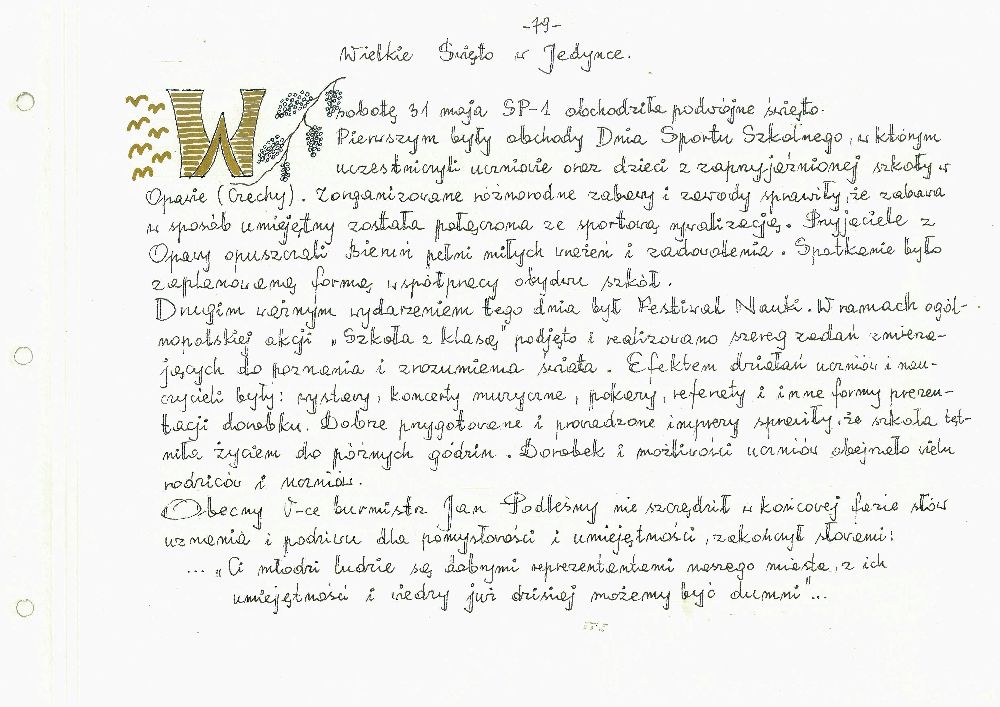 -79-
Wielkie Święto w Jedynce.
W sobotę 31 maja SP-1 obchodziła podwójne święto.
Pierwszym były obchody Dnia Sportu Szkolnego, w którym
uczestniczyli uczniowie oraz dzieci z zaprzyjaźnionej szkoły w
Opavie (Czechy). Zorganizowane różnorodne zabawy i zawody sprawiły, że zabawa
w sposób umiejętny została połączona ze sportową rywalizacją. Przyjaciele z
Opavy opuszczali Bieruń pełni miłych wrażeń i zadowolenia. Spotkanie było
zaplanowaną formą współpracy obydwu szkół.
Drugim ważnym wydarzeniem tego dnia był Festiwal Nauki. W ramach ogól-
nopolskiej akcji "Szkoła z klasą" podjęto i realizowano szereg zadań zmierza-
jących do poznania i zrozumienia świata. Efektem działań uczniów i nau-
czycieli były: wystawy, koncerty muzyczne, pokazy, referaty i inne formy prezen-
tacji dorobku. Dobrze przygotowane i prowadzone imprezy sprawiły, że szkoła tęt-
niła życiem do późnych godzin. Dorobek i możliwości uczniów obejrzało wielu
rodziców i uczniów.
Obecny V-ce burmistrz Jan Podleśny nie szczędził w końcowej fazie słów
uznania i podziwu dla pomysłowości i umiejętności, zakończył słowami:
... "Ci młodzi ludzie są dobrymi reprezentantami naszego miasta, z ich
umiejętności i wiedzy już dzisiaj możemy być dumni"...